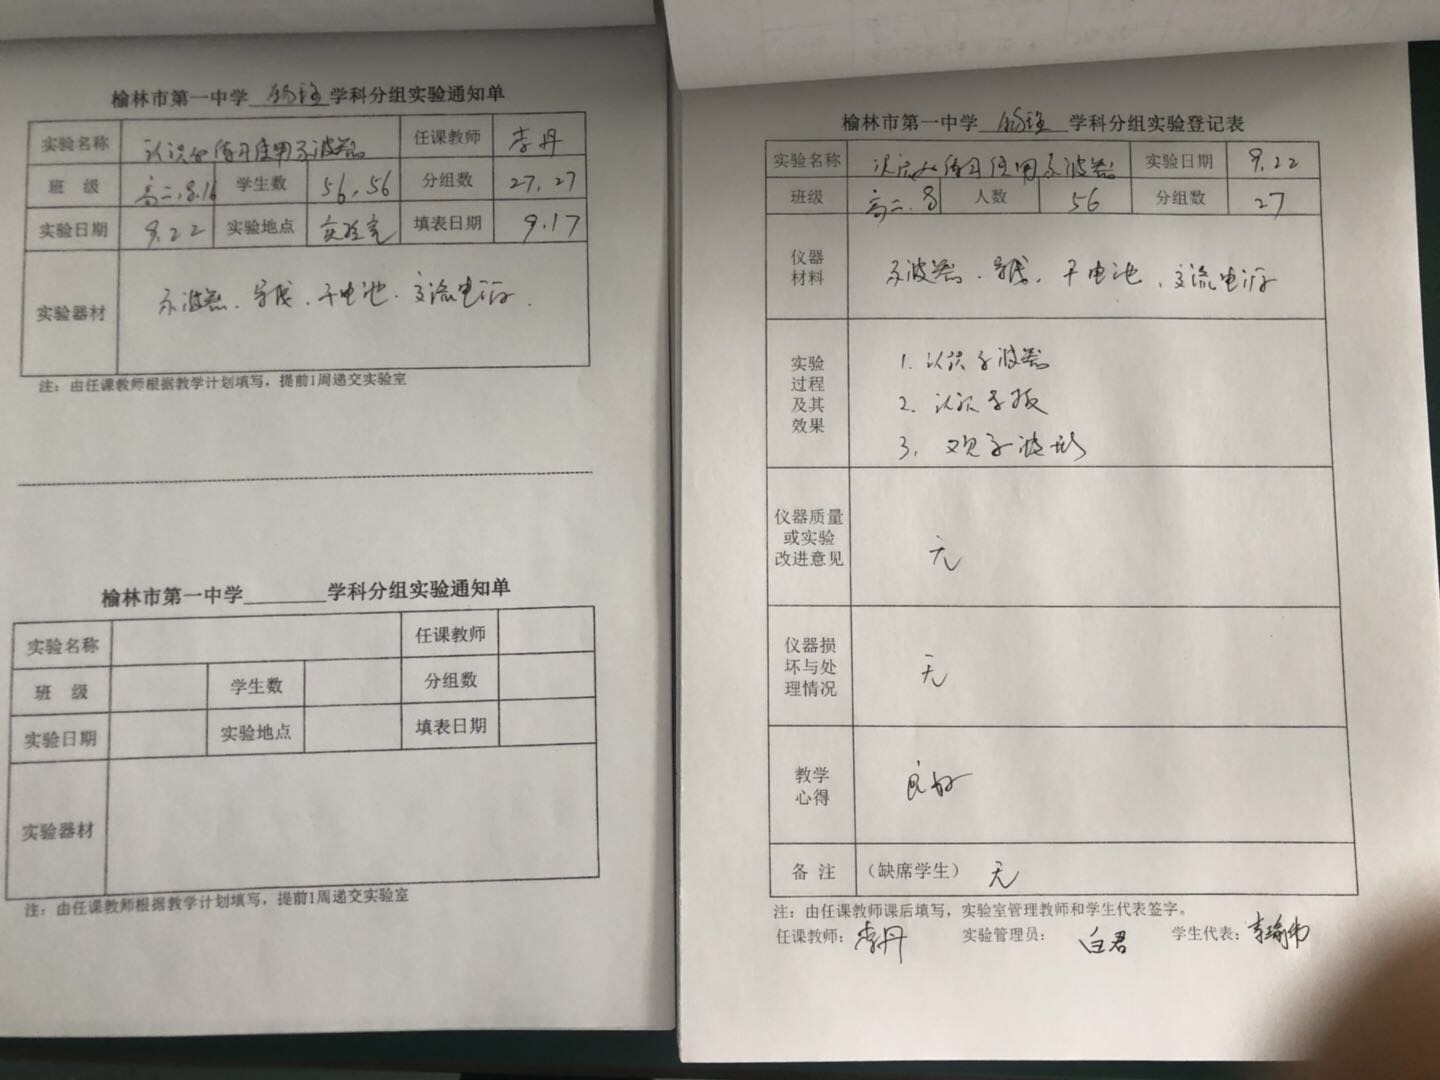 榆林市第一中学 物理 学科分组实验通知单
实验名称 认识和练习使用示波器 任课教师 李丹
班 级 高二.8.16 学生数 56,56 分组数 27,27
实验日期 9.22 实验地点 实验室 填表日期 9.17
实验器材 示波器、导线、干电池、交流电源.
注：由任课教师根据教学计划填写，提前1周递交实验室
榆林市第一中学________学科分组实验通知单
实验名称 任课教师
班 级 学生数 分组数
实验日期 实验地点 填表日期
实验器材
注：由任课教师根据教学计划填写，提前1周递交实验室
榆林市第一中学 物理 学科分组实验登记表
实验名称 认识和练习使用示波器 实验日期 9.22
班级 高二.8 人数 56 分组数 27
仪器
材料
示波器、导线、干电池、交流电源
实验
过程
及其
效果
1. 认识示波器
2. 认识面板
3. 观察波形
仪器质量
或实验
改进意见
无
仪器损
坏与处
理情况
无
教学
心得
良好
备 注 （缺席学生） 无
注：由任课教师课后填写，实验室管理教师和学生代表签字。
任课教师：李丹 实验管理员：白君 学生代表：